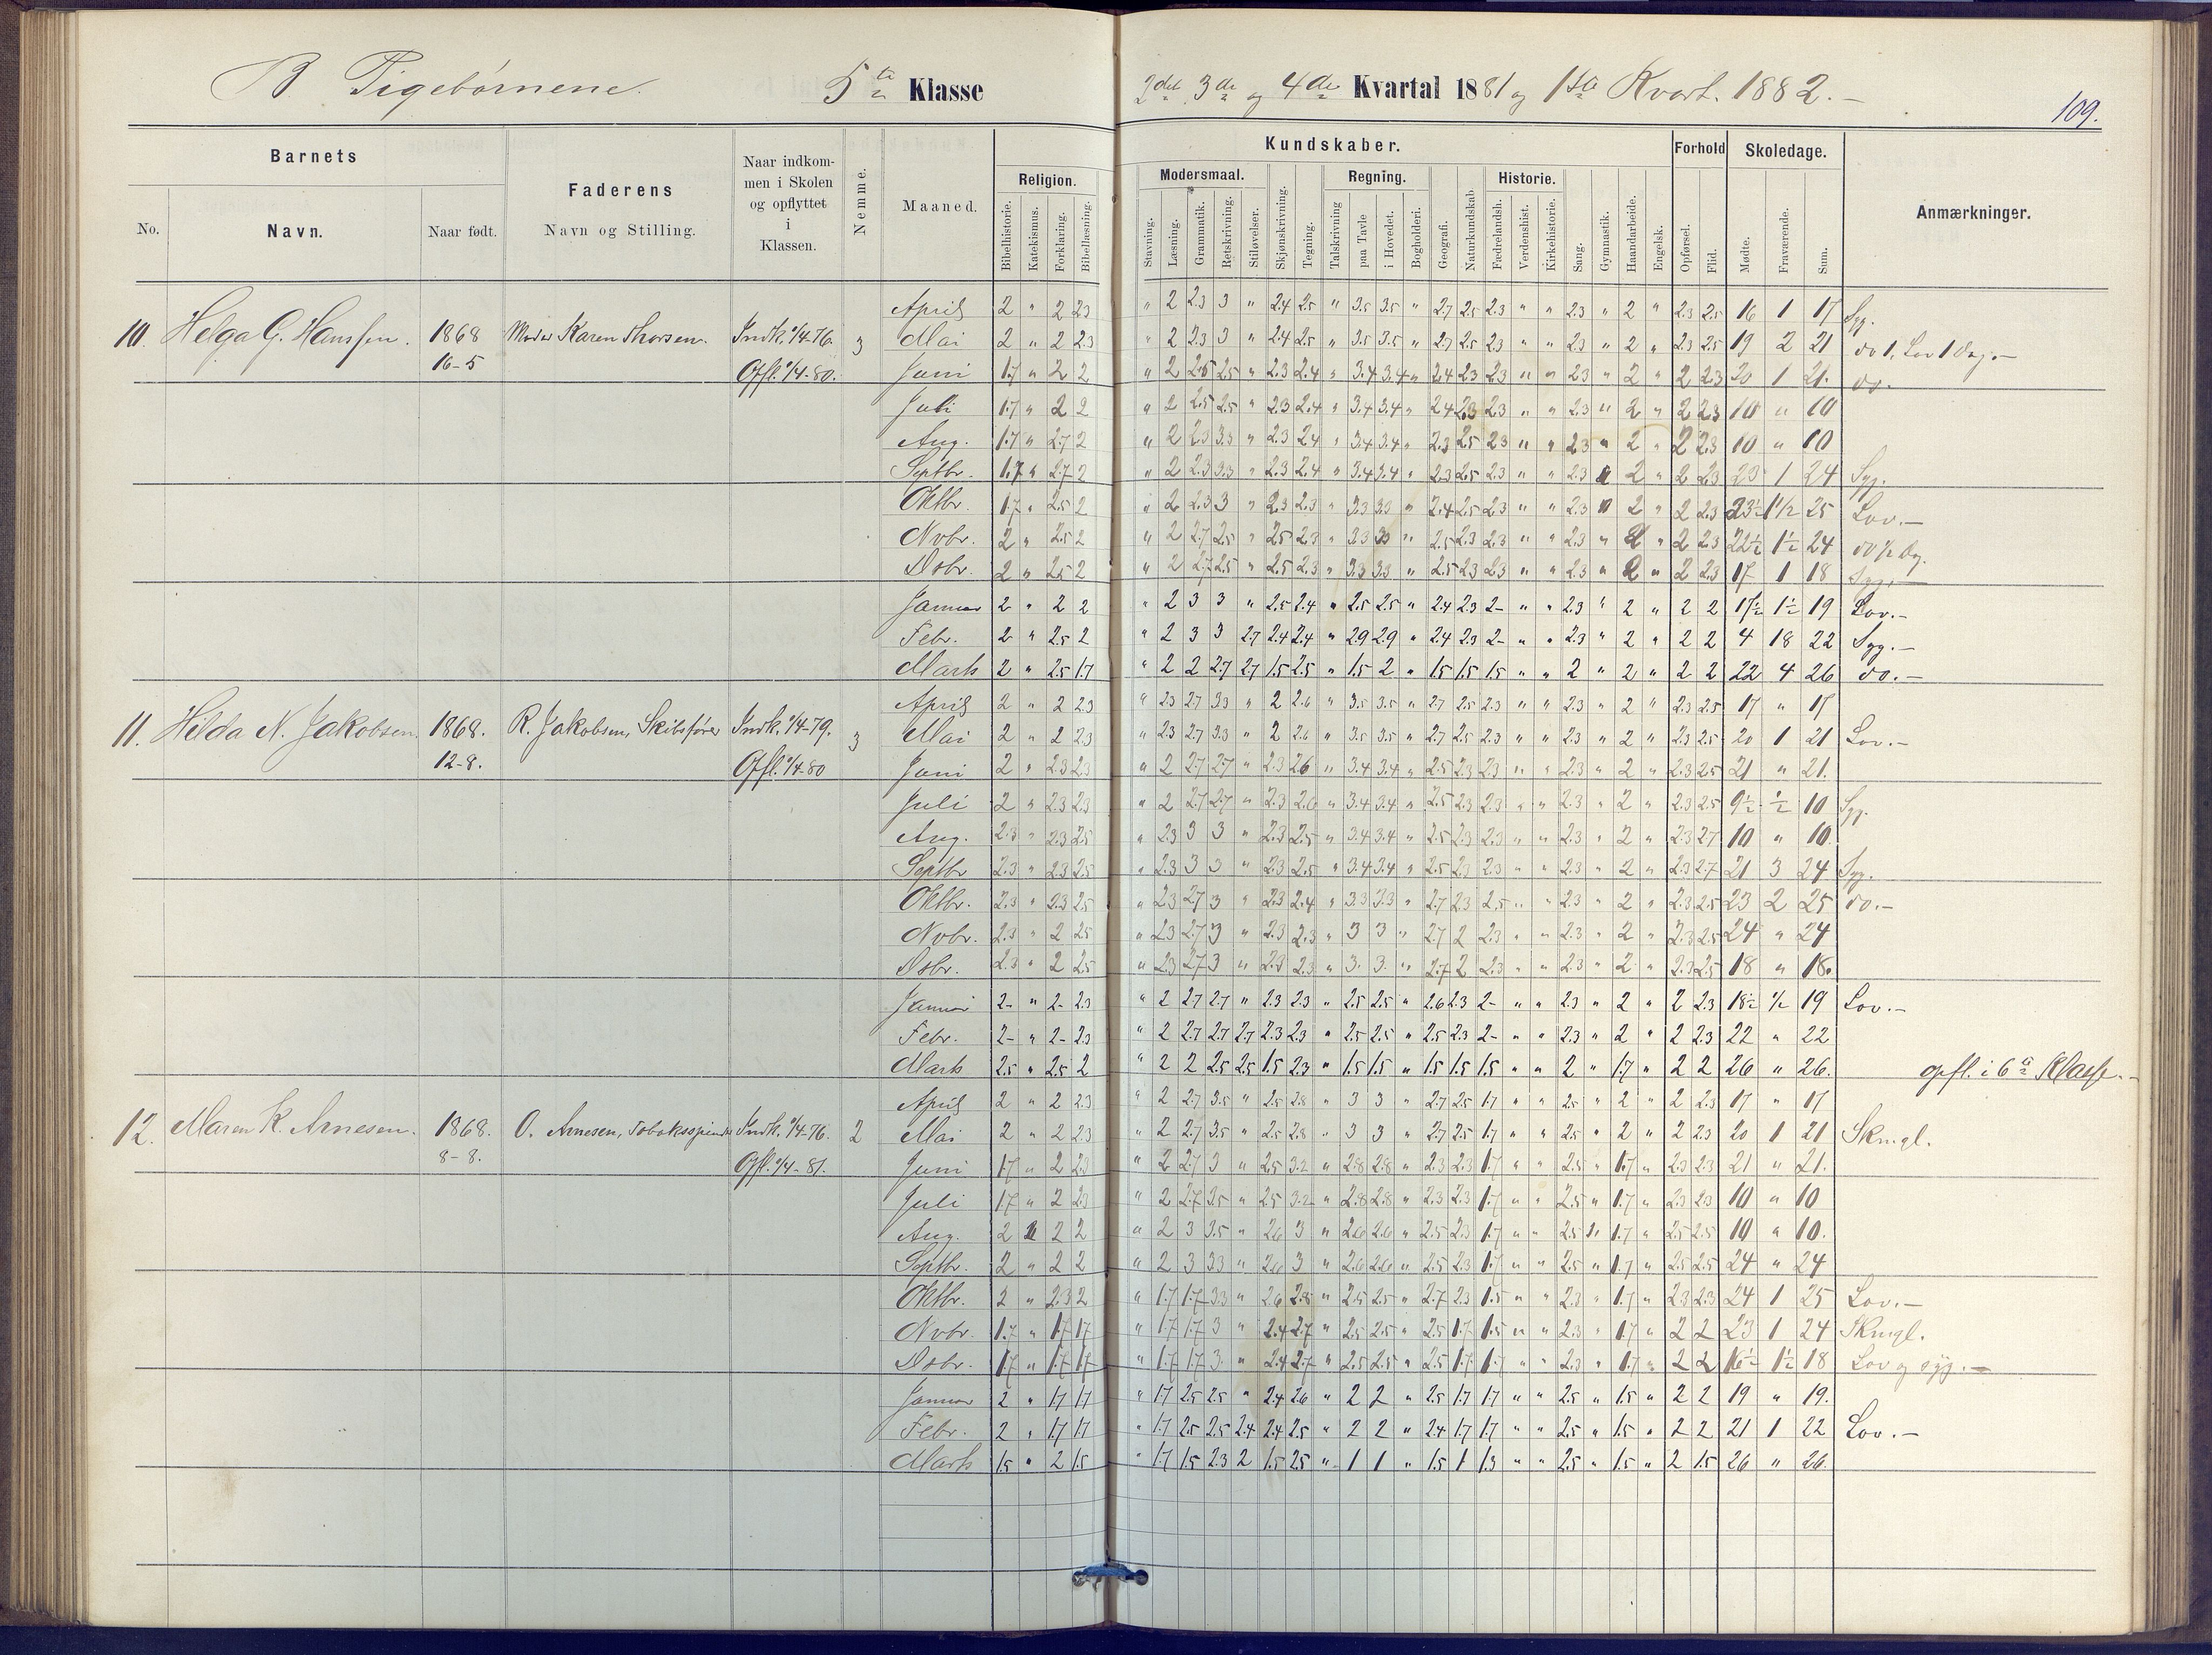 B Pigebörnene. 5te Klasse 2det 3de og 4de Kvartal 1881 og 1ste Kvart. 1882.-
109.
Barnets
No.
Navn.
Naar født.
Faderens
Navn og Stilling.
Naar indkom-
men i Skolen
og opflyttet
i
Klassen.
Nemme.
Maaned.
Kundskaber.
Religion.
Bibelhistorie.
Katekismus.
Forklaring.
Bibellæsning.
Modersmaal.
Stavning.
Læsning.
Grammatik.
Retskrivning.
Stiløvelser.
Skjønskrivning.
Tegning.
Regning.
Talskrivning
paa Tavle
i Hovedet.
Bogholderi.
Geografi.
Naturkundskab
Historie.
Fædrelandsh.
Verdenshist.
Kirkehistorie.
Sang.
Gymnastik.
Haandarbeide.
Engelsk.
Forhold
Opførsel.
Flid.
Skoledage.
Mødte.
Fraværende.
Sum.
Anmærkninger.
10. Helga G. Hanssen. 1868 Moder Karen Thorsen. Indk. 1/4-76. 3
16-5 Opfl. 1/4-80.
April 2 " 2 2.3 " 2 2.3 3 " 2.4 2.5 " 3.5 3.5 " 2.7 2.5 2.3 " " 2.3 " 2 " 2.3 2.5 16 1 17 Syg.
Mai 2 " 2 2.3 " 2 2.3 3 " 2.4 2.5 " 3.5 3.5 " 2.7 2.5 2.3 " " 2.3 " 2 " 2.3 2.5 19 2 21 do 1, Lov 1 Dag.-
Juni 1.7 " 2 2 " 2 2.5 2.5 " 2.3 2.4 " 3.4 3.4 " 2.4 2.3 2.3 " " 2.3 " 2 " 2 2.3 20 1 21. do.
Juli 1.7 " 2 2 " 2 2.5 2.5 " 2.3 2.4 " 3.4 3.4 " 2.4 2.3 2.3 " " 2.3 " 2 " 2 2.3 10 " 10
Aug. 1.7 " 2.7 2 " 2 2.3 3.3 " 2.3 2.4 " 3.4 3.4 " 2.3 2.5 2.3 " " 2.3 " 2 " 2 2.3 10 " 10
Septbr. 1.7 " 2.7 2 " 2 2.3 3.3 " 2.3 2.4 " 3.4 3.4 " 2.3 2.5 2.3 " " 2.3 " 2 " 2 2.3 23 1 24 Syg.
Oktbr. 1.7 " 2.5 2 " 2 2.3 3 " 2.3 2.3 " 3.3 3.3 " 2.4 2.5 2.3 " " 2.3 " 2 " 2 2.3 23½ 1½ 25 Lov.-
Nvbr. 2 " 2.5 2 " 2 2.7 2.5 " 2.5 2.3 " 3.3 3.3 " 2.5 2.3 2.3 " " 2.3 " 2 " 2 2.3 22½ 1½ 24 do ½ Dag.
Dsbr. 2 " 2.5 2 " 2 2.7 2.5 " 2.5 2.3 " 3.3 3.3 " 2.5 2.3 2.3 " " 2.3 " 2 " 2 2.3 17 1 18 Syg.-
Januar 2 " 2 2 " 2 3 3 " 2.5 2.4 " 2.5 2.5 " 2.4 2.3 2- " " 2.3 " 2 " 2 2 17½ 1½ 19 Lov.-
Febr. 2 " 2.5 2 " 2 3 3 2.7 2.4 2.4 " 2.9 2.9 " 2.4 2.3 2- " " 2.3 " 2 " 2 2 4 18 22 Syg.-
Marts 2 " 2.5 1.7 " 2 2 2.7 2.7 1.5 2.5 " 1.5 2 " 1.5 1.5 1.5 " " 2 " 2 " 2 2 22 4 26 do.-
11. Hilda N. Jakobsen. 1868. R. Jakobsen, Skibsfører Indk. 1/4-79. 3
12-8. Opfl. 1/4-80
April 2 " 2 2.3 " 2.3 2.7 3.3 " 2 2.6 " 3.5 3.5 " 2.7 2.5 2.3 " " 2.3 " 2 " 2.3 2.5 17 " 17
Mai 2 " 2 2.3 " 2.3 2.7 3.3 " 2 2.6 " 3.5 3.5 " 2.7 2.5 2.3 " " 2.3 " 2 " 2.3 2.5 20 1 21 Lov.-
Juni 2 " 2.3 2.3 " 2 2.7 2.7 " 2.3 2.6 " 3.4 3.4 " 2.5 2.3 2.3 " " 2.3 " 2 " 2.3 2.5 21 " 21.
Juli 2 " 2.3 2.3 " 2 2.7 2.7 " 2.3 2.6 " 3.4 3.4 " 2.5 2.3 2.3 " " 2.3 " 2 " 2.3 2.5 9½ ½ 10 Syg.
Aug. 2.3 " 2.3 2.5 " 2.3 3 3 " 2.3 2.5 " 3.4 3.4 " 2.5 2.3 2.3 " " 2.3 " 2 " 2.3 2.7 10 " 10
Septbr 2.3 " 2.3 2.5 " 2.3 3 3 " 2.3 2.5 " 3.4 3.4 " 2.5 2.3 2.3 " " 2.3 " 2 " 2.3 2.7 21 3 24 Syg.
Oktbr. 2.3 " 2.3 2.5 " 2.3 2.7 3 " 2.3 2.4 " 3.3 3.3 " 2.7 2.3 2.5 " " 2.3 " 2 " 2.3 2.5 23 2 25 do.-
Nvbr. 2.3 " 2 2.5 " 2.3 2.7 3 " 2.3 2.3 " 3 3 " 2.7 2 2.3 " " 2.3 " 2 " 2.3 2.5 24 " 24
Dsbr. 2.3 " 2 2.5 " 2.3 2.7 3 " 2.3 2.3 " 3. 3. " 2.7 2 2.3 " " 2.3 " 2 " 2.3 2.5 18 " 18.
Januar 2- " 2- 2.3 " 2 2.7 2.7 " 2.3 2.3 " 2.5 2.5 " 2.6 2.3 2- " " 2.3 " 2 " 2 2.3 18½ ½ 19 Lov.-
Febr. 2- " 2- 2.3 " 2 2.7 2.7 2.7 2.3 2.3 " 2.5 2.5 " 2.5 2.3 2- " " 2.3 " 2 " 2 2.3 22 " 22
Marts 2.5 " 2.5 2 " 2 2 2.5 2.5 1.5 2.3 " 1.5 1.5 " 1.5 1.5 1.5 " " 2 " 1.7 " 2 2 26 " 26. opfl. i 6te Klasse.-
12. Maren K. Arnesen. 1868. O. Arnesen, Tobaksspinder Indk. 1/4-76. 2
8-8. Opfl. 1/4-81.
April 2 " 2 2.3 " 2 2.7 3.5 " 2.5 2.8 " 3 3 " 2.7 2.5 1.7 " " 2.5 " 2 " 2 2.3 17 " 17
Mai 2 " 2 2.3 " 2 2.7 3.5 " 2.5 2.8 " 3 3 " 2.7 2.5 1.7 " " 2.5 " 2 " 2 2.3 20 1 21 Skmgl.
Juni 1.7 " 2 2.3 " 2 2.7 3 " 2.5 3.2 " 2.8 2.8 " 2.3 2.3 1.7 " " 2.5 " 1.7 " 2.3 2.3 21 " 21.
Juli 1.7 " 2 2.3 " 2 2.7 2.5 " 2.5 3.2 " 2.8 2.8 " 2.3 2.3 1.7 " " 2.5 " 1.7 " 2.3 2.3 10 " 10
Aug. 2 " 2 2 " 2 3 3.5 " 2.6 3 " 2.6 2.6 " 2.5 2.3 1.7 " " 2.5 " 1.7 " 2.5 2.5 10 " 10.
Septbr. 2 " 2 2 " 2 3 3.3 " 2.6 3 " 2.6 2.6 " 2.5 2.3 1.7 " " 2.5 " 1.7 " 2.5 2.5 24 " 24
Oktbr. 2 " 2.3 2 " 1.7 1.7 3.3 " 2.6 2.8 " 2.5 2.5 " 2.7 2.3 1.5 " " 2.3 " 1.7 " 2.3 2.3 24 1 25 Lov.-
Nvbr. 1.7 " 1.7 1.7 " 1.7 1.7 3 " 2.4 2.7 " 2.5 2.5 " 2.5 1.7 1.5 " " 2.3 " 1.7 " 2 2 23 1 24 Skmgl.
Dsbr. 1.7 " 1.7 1.7 " 1.7 1.7 3 " 2.4 2.7 " 2.5 2.5 " 2.5 1.7 1.7 " " 2.3 " 1.7 " 2 2 16½ 1½ 18 Lov og syg.-
Januar 2 " 1.7 1.7 " 1.7 2.5 2.5 " 2.4 2.6 " 2 2 " 2.5 1.7 1.7 " " 2.5 " 1.5 " 2 2 19 " 19.
Febr. 2 " 1.7 1.7 " 1.7 2.5 2.5 2.4 2.4 2.5 " 2 2 " 2.4 1.7 1.7 " " 2.5 " 1.5 " 2 2 21 1 22 Lov.-
Marts 1.5 " 2 1.5 " 1.7 1.5 2.3 2 1.5 2.5 " 1 1 " 1.5 1 1.3 " " 2.5 " 1.5 " 2 1.5 26 " 26.